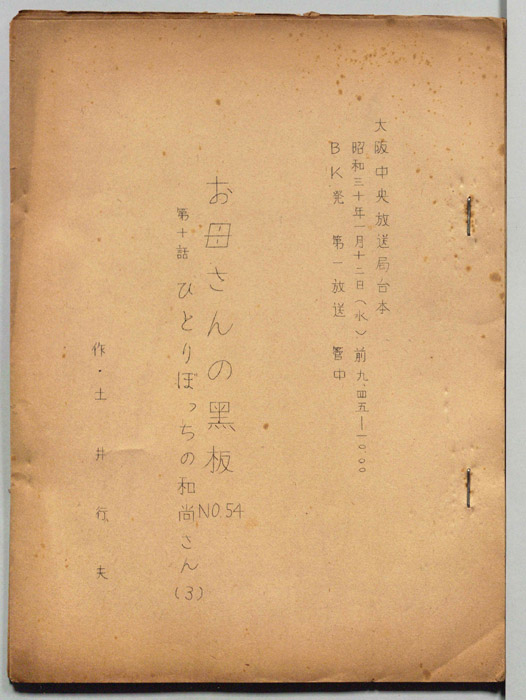 大阪中央放送局台本
昭和三十年一月十二日(水)前九、四五―一〇〇〇
BK発 第一放送 管中
お母さんの黑板 NO.54
第十話 ひとりぼっちの和尚さん(3)
作・土井行夫